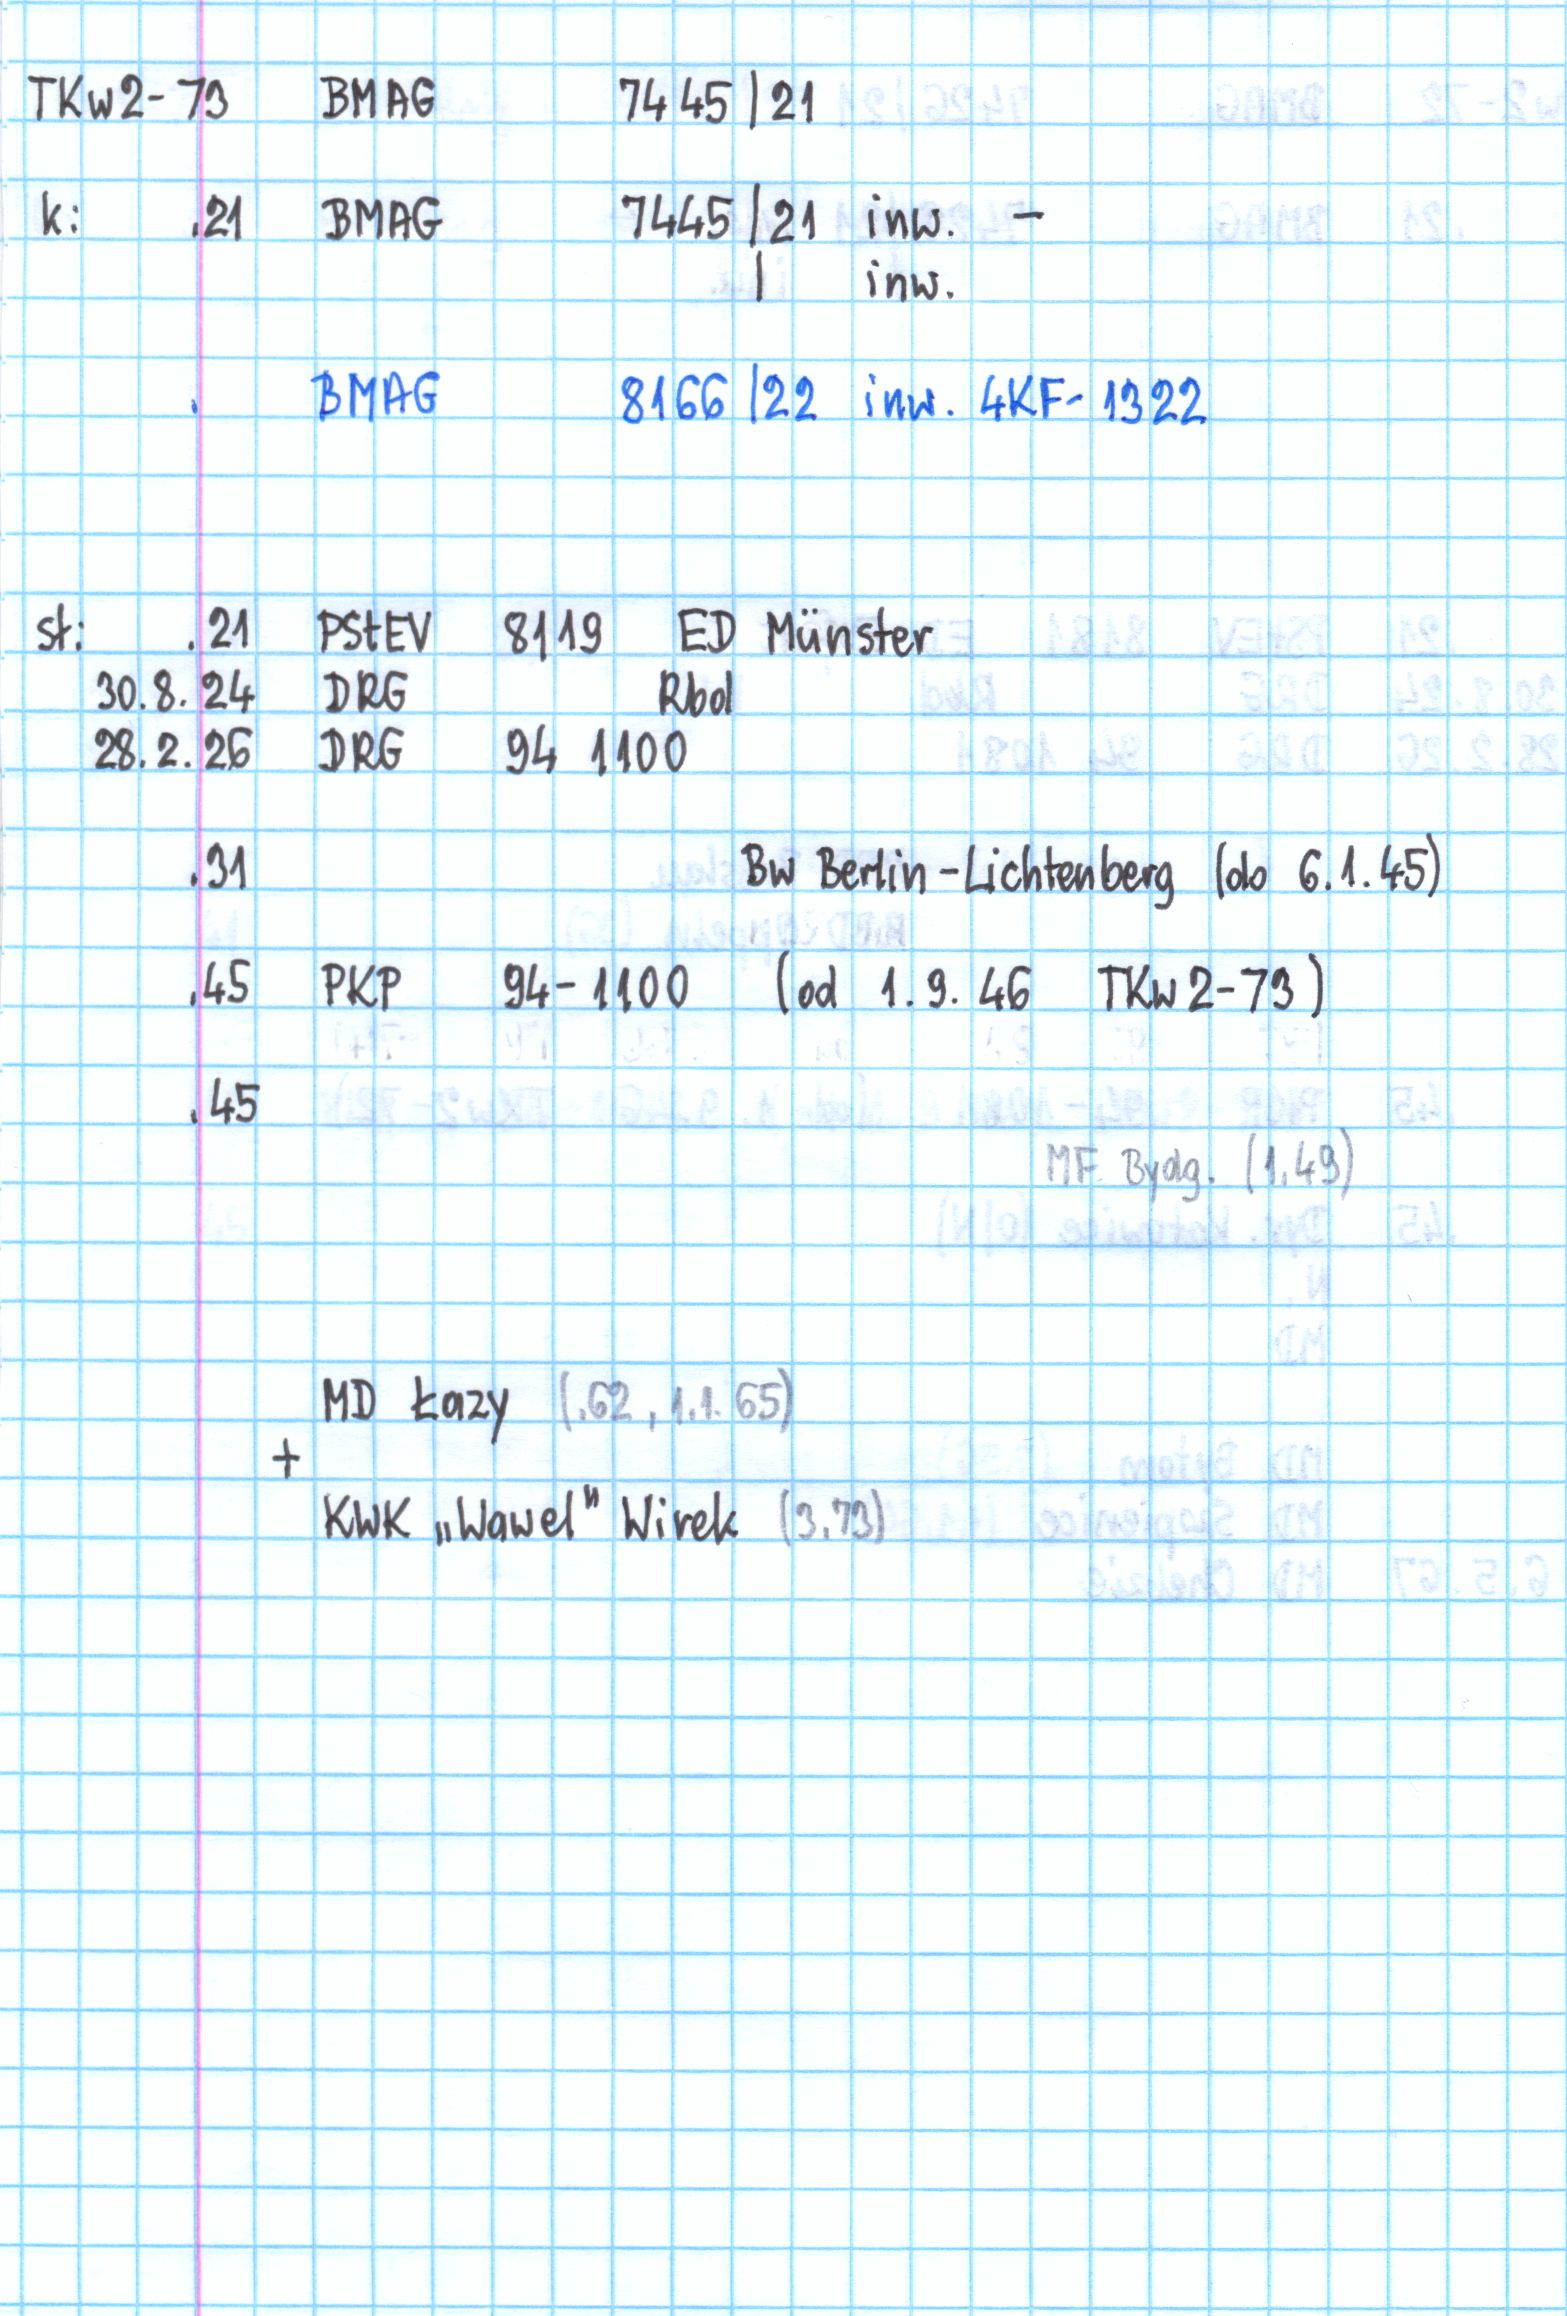 TKw2-73 BMAG 7445/21
k: .21 BMAG 7445/21 inw. -
/ inw.
. BMAG 8166/22 inw. 4KF-1322
st: .21 PStEV 8119 ED Münster
30.8.24 DRG Rbd
28.2.26 DRG 94 1100
.31 Bw Berlin-Lichtenberg (do 6.1.45)
.45 PKP 94-1100 (od 1.9.46 TKw2-73)
.45
MF Bydg. (1.49)
MD Łazy (.62, 1.1.65)
+
KWK „Wawel" Wirek (3.73)